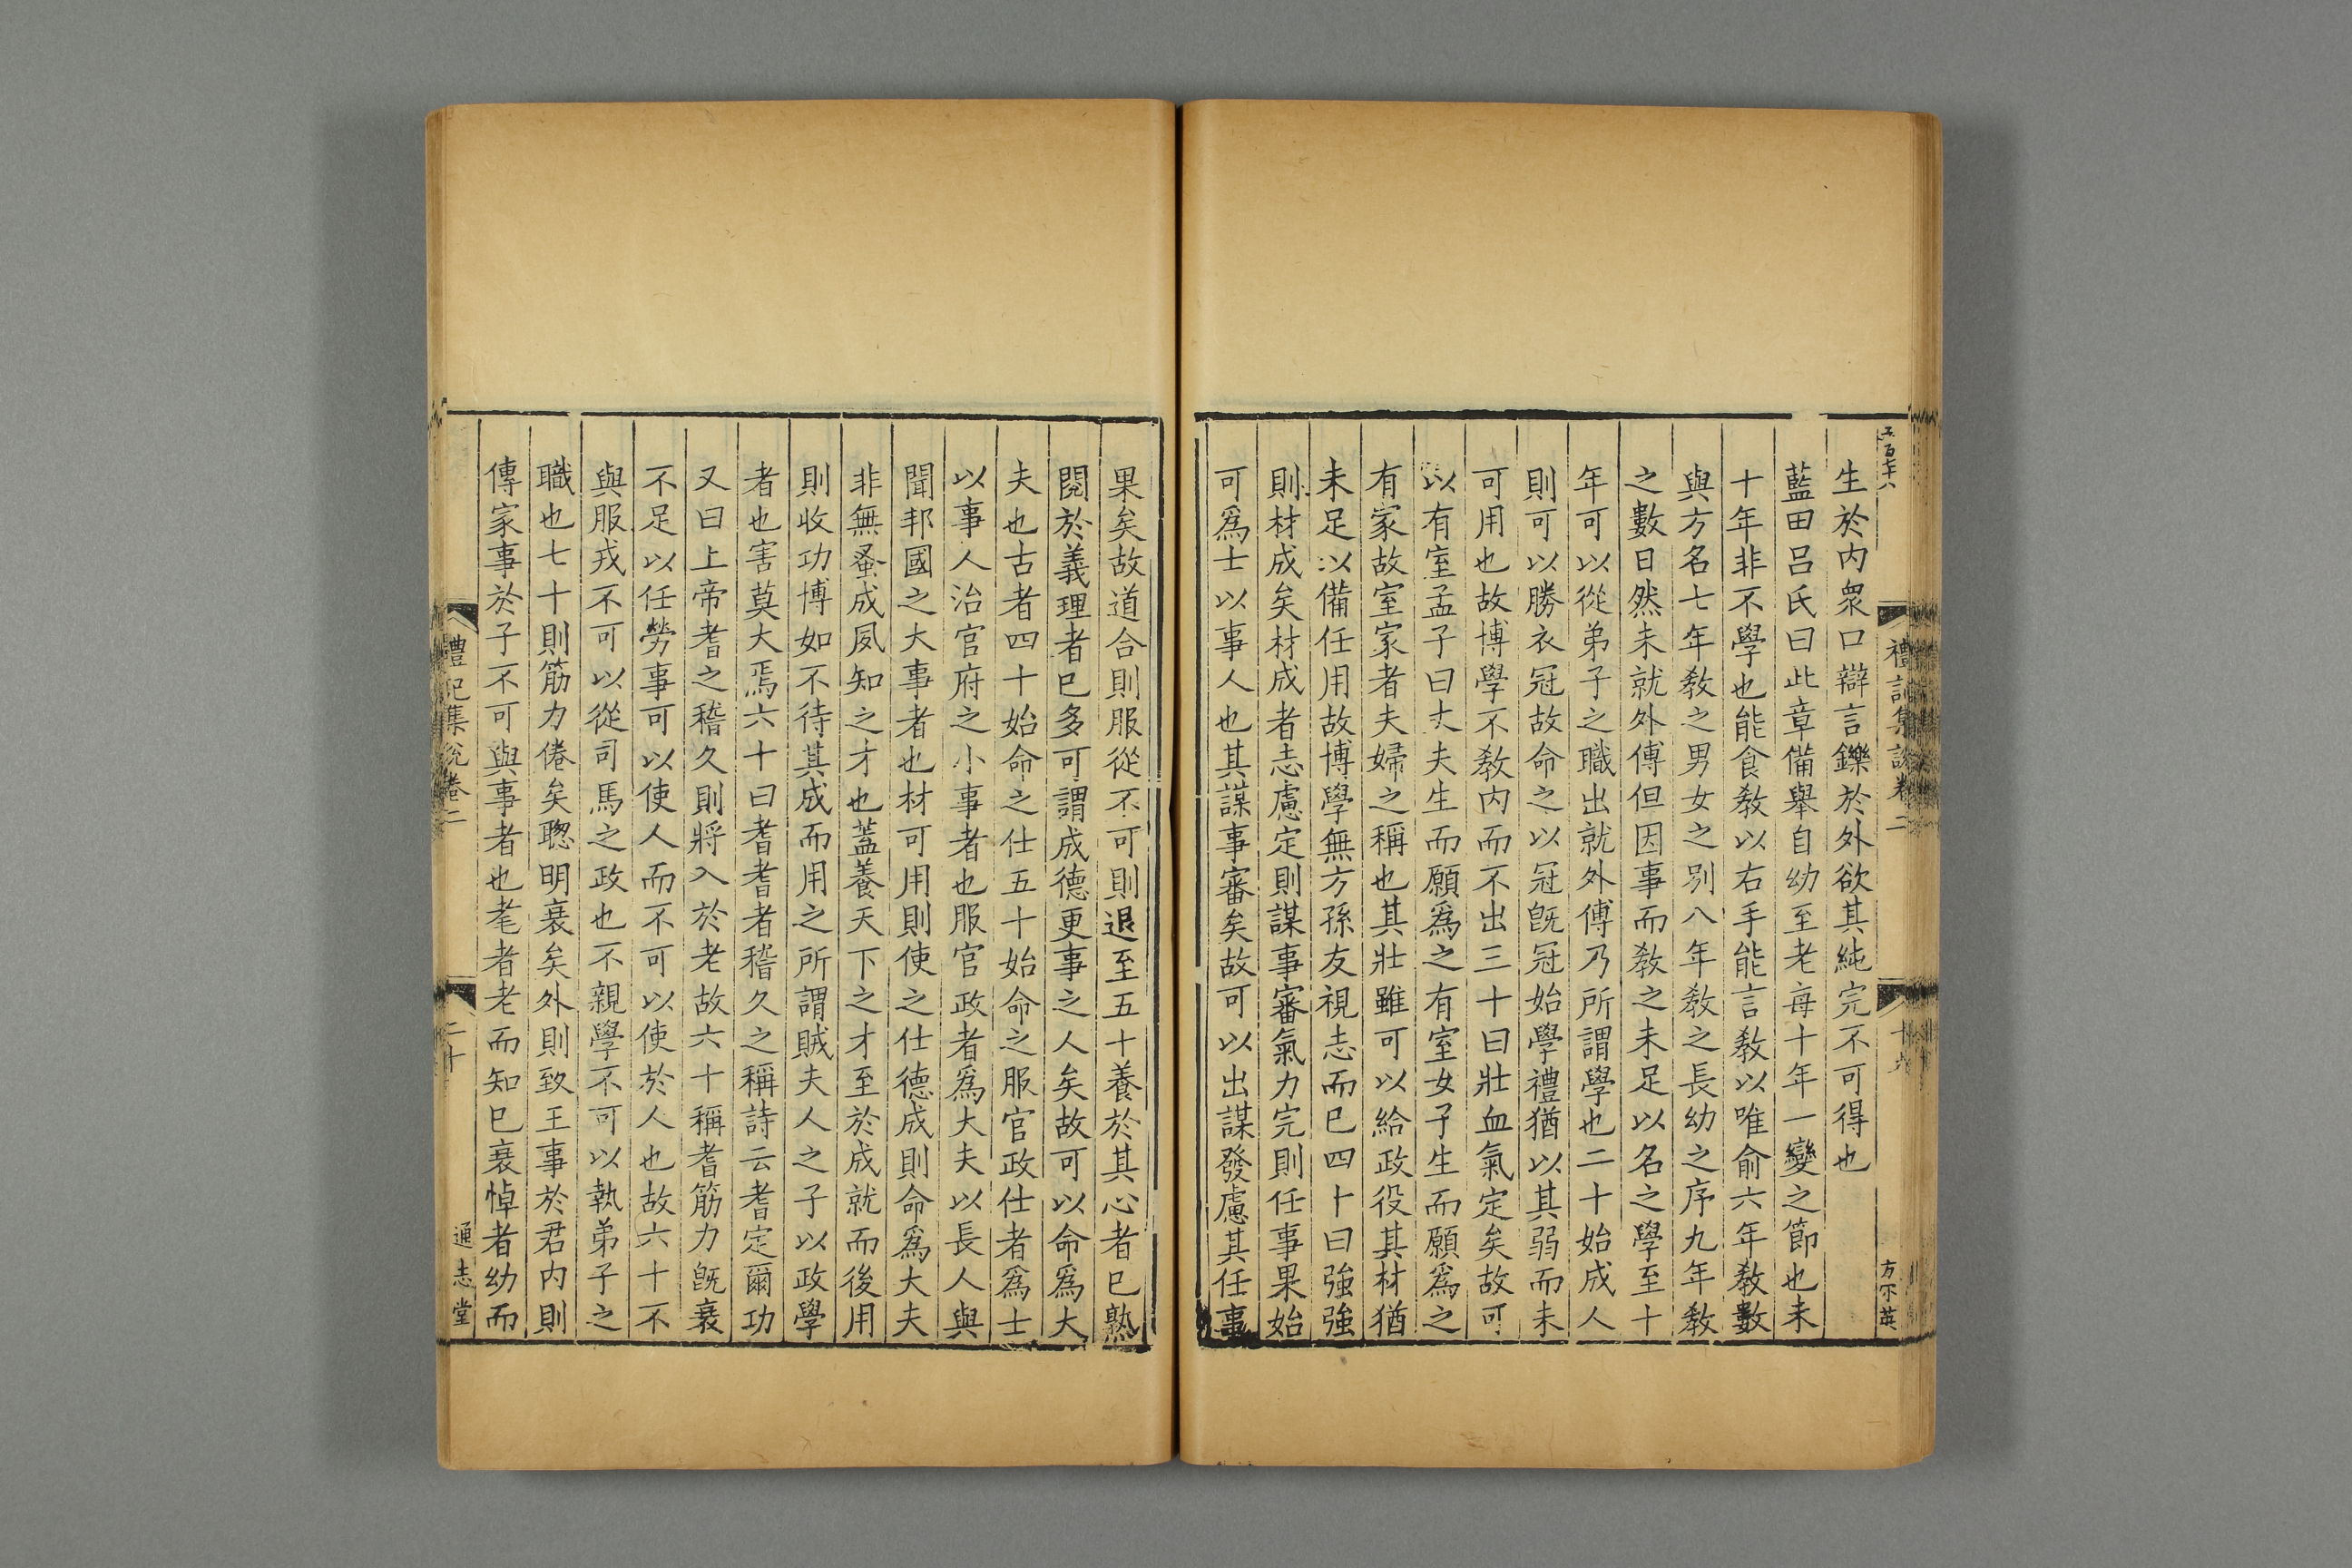 生於内衆口辯言鑠於外欲其純完不可得也
藍田呂氏曰此章備舉自幼至老每十年一變之節也未
十年非不學也能食敎以右手能言敎以唯俞六年敎數
與方名七年敎之男女之別八年敎之長幼之序九年敎
之數日然未就外傅但因事而敎之未足以名之學至十
年可以從弟子之職出就外傅乃所謂學也二十始成人
則可以勝衣冠故命之以冠旣冠始學禮猶以其弱而未
可用也故博學不敎内而不出三十曰壯血氣定矣故可
以有室孟子曰丈夫生而願爲之有室女子生而願爲之
有家故室家者夫婦之稱也其壯雖可以給政役其材猶
未足以備任用故博學無方孫友視志而已四十曰強強
則材成矣材成者志慮定則謀事審氣力完則任事果始
可爲士以事人也其謀事審矣故可以出謀發慮其任事
禮記集說卷二
方不英
果矣故道合則服從不可則退至五十養於其心者已熟
閱於義理者已多可謂成德更事之人矣故可以命爲大
夫也古者四十始命之仕五十始命之服官政仕者爲士
以事人治官府之小事者也服官政者爲大夫以長人與
聞邦國之大事者也材可用則使之仕德成則命爲大夫
非無蚤成夙知之才也蓋養天下之才至於成就而後用
則收功博如不待其成而用之所謂賊夫人之子以政學
者也害莫大焉六十曰耆耆者稽久之稱詩云耆定爾功
又曰上帝耆之稽久則將入於老故六十稱耆筋力旣衰
不足以任勞事可以使人而不可以使於人也故六十不
與服戎不可以從司馬之政也不親學不可以執弟子之
職也七十則筋力倦矣聰明衰矣外則致王事於君内則
傳家事於子不可與事者也耄者老而知已衰悼者幼而
禮記集說卷二
二十
通志堂